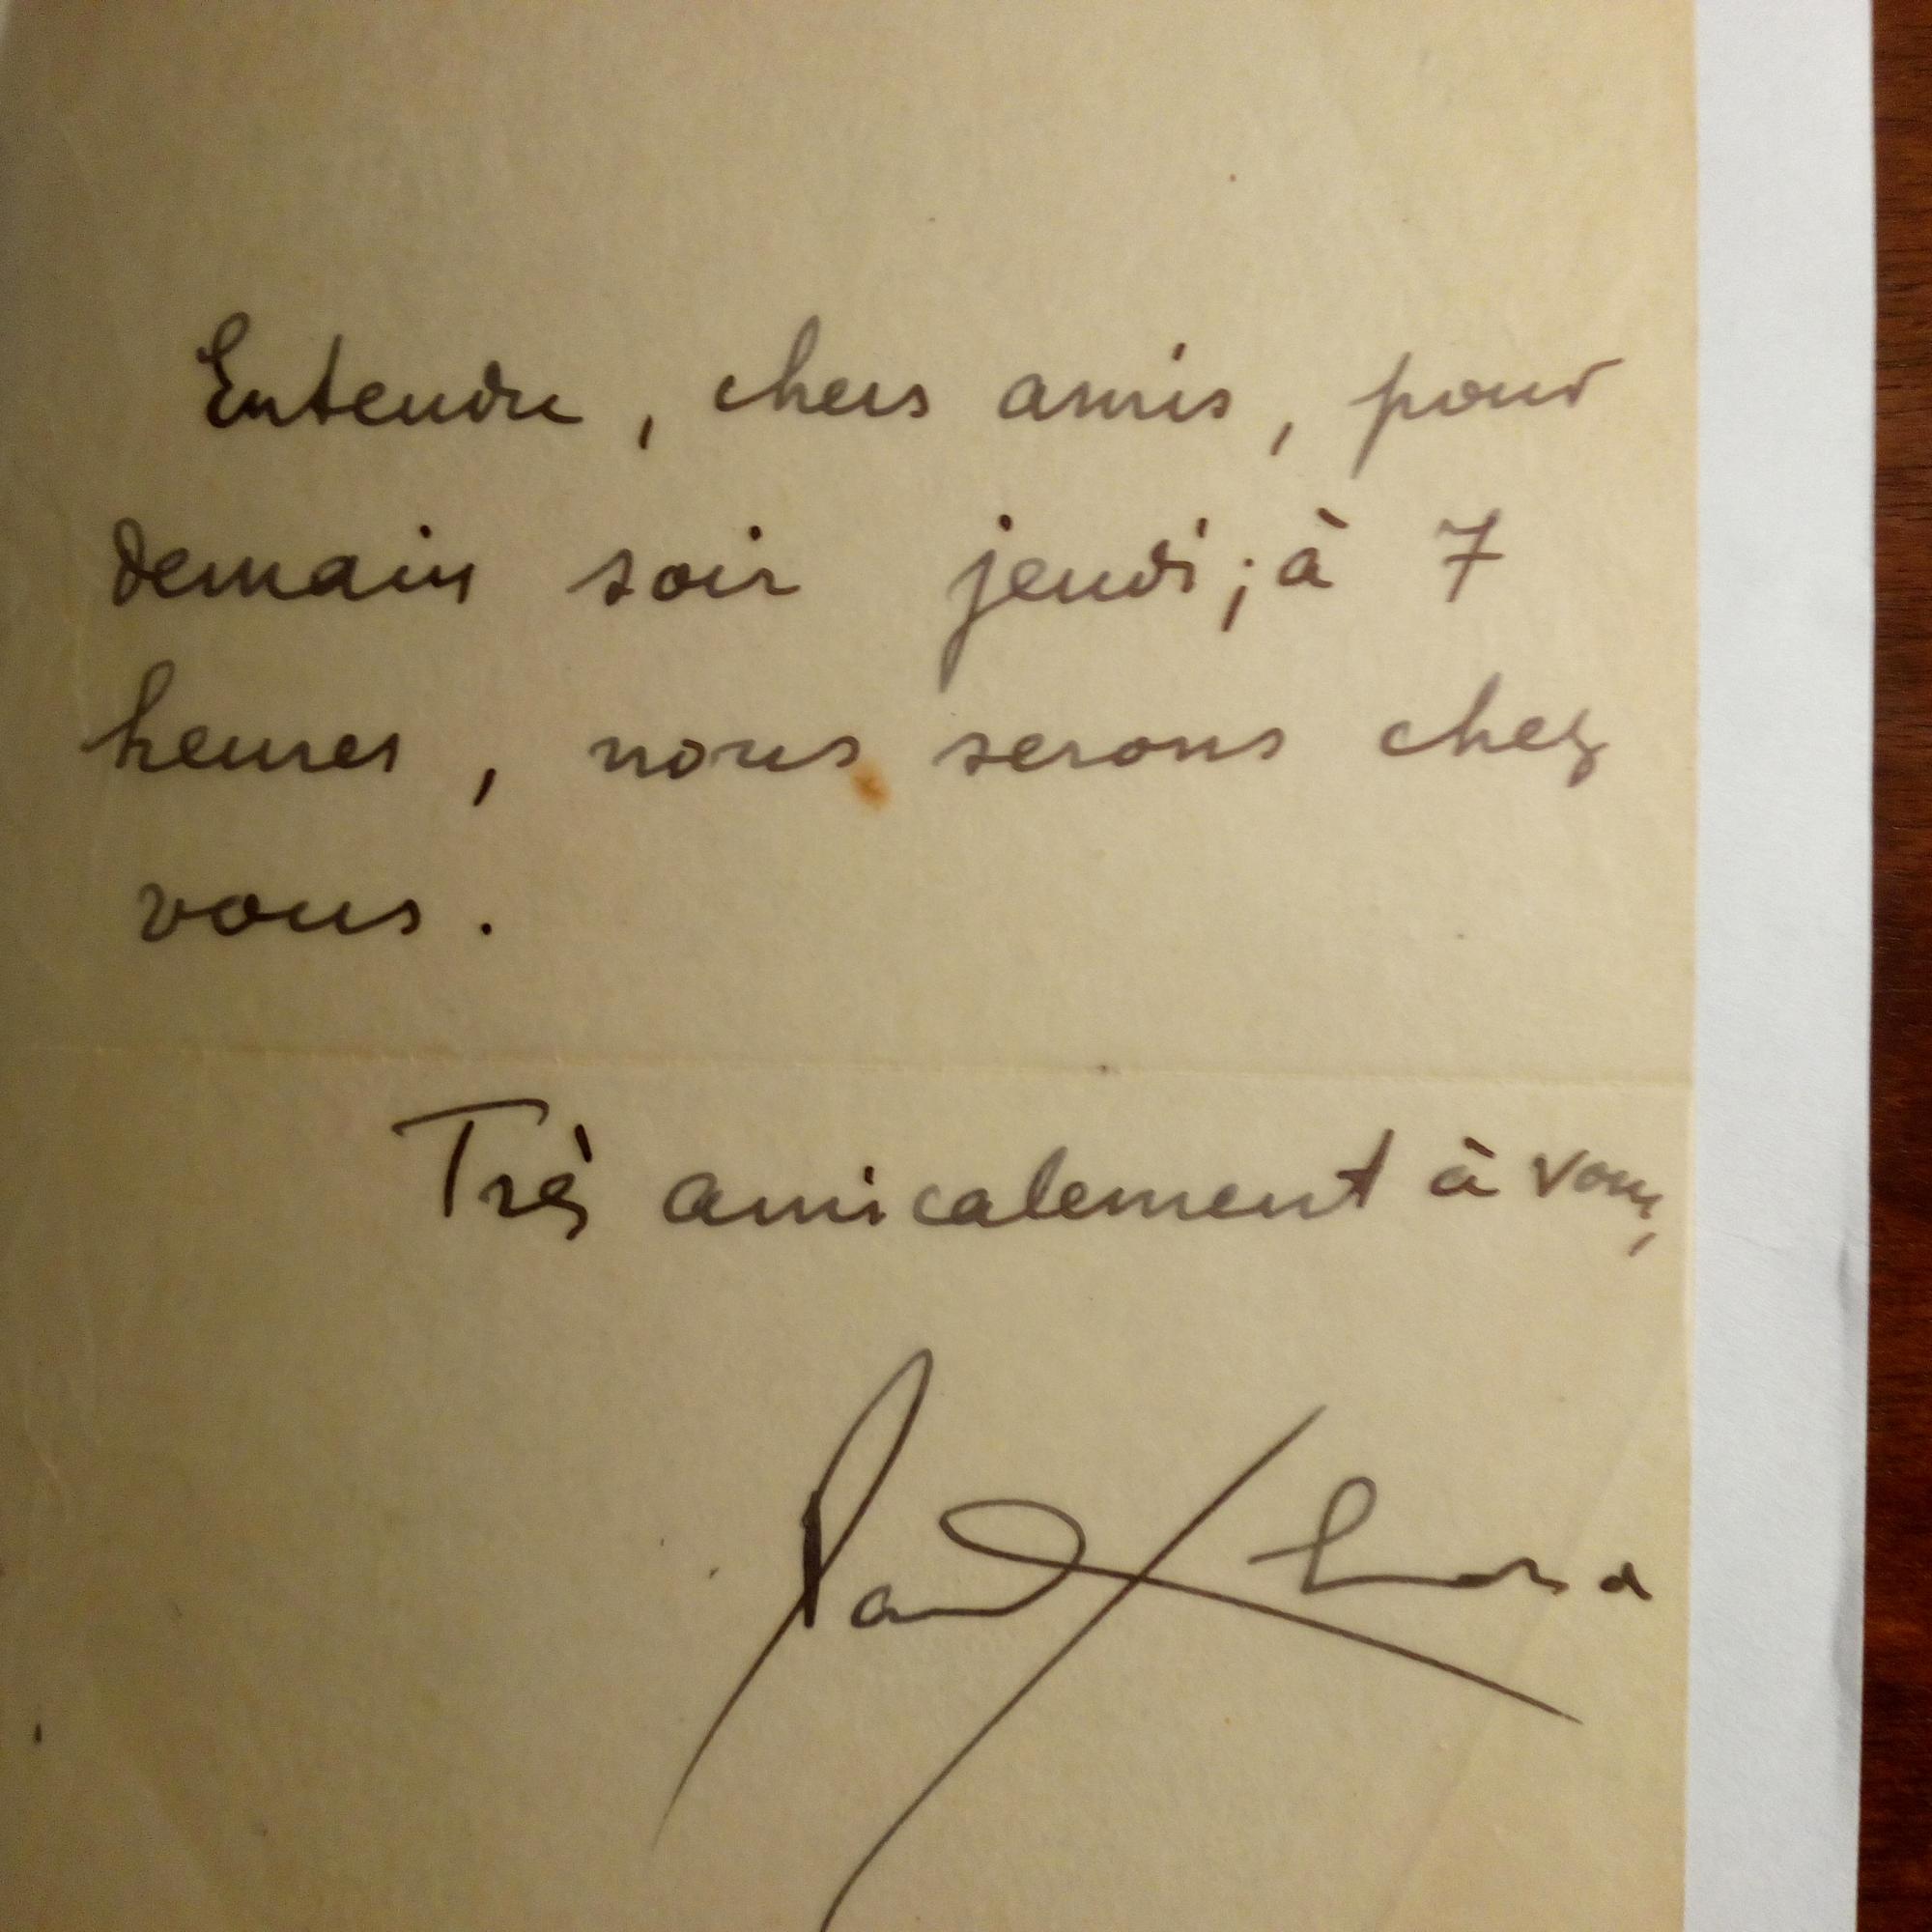 Entendu, chers amis, pour
demain soir jeudi; à 7
heures, nous serons chez
vous.
Très amicalement à vous,
Paul